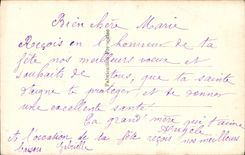 Bien chère Marie
Reçois en l'honneur de ta
fête nos meilleurs voeux et
souhaits de tous, que ta sainte
daigne te protéger et te donner
une excellente santé
Ta grand'mère qui t'aime
A l'occasion de ta fête reçois nos meilleurs